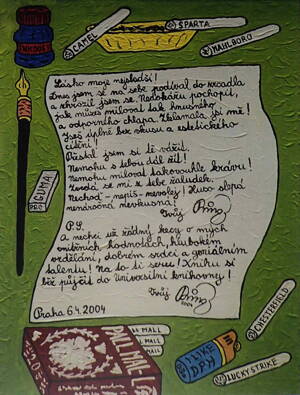 CAMEL
SPARTA
MARLBORO
INKOUST
GUMA
Lásko moje nejsladší!
Dnes jsem se na sebe podíval do zrcadla
a zhrozil jsem se. Nedokážu pochopit,
jak můžeš milovat tak hnusného
a odporného chlapa. Zklamala jsi mě!
Jseš úplně bez vkusu a estetického
cítění!
Přestal jsem si tě vážit.
Nemohu s tebou dál žít!
Nemohu milovat takovouhle krávu!
Zvedá se mi z tebe žaludek.
Nechoď - nepiš - nevolej! Huso slepá
nenáročná nevkusná!
Tvůj
P.S.
A nechci už žádný kecy o mých
vnitřních hodnotách, hlubokém
vzdělání, dobrém srdci a geniálním
talentu! Na to ti seru! Knihu si
běž půjčit do univerzitní knihovny!
Tvůj
Praha 6.4.2004
PALL MALL
MALL
MALL
MALL
CHESTERFIELD
LUCKY STRIKE